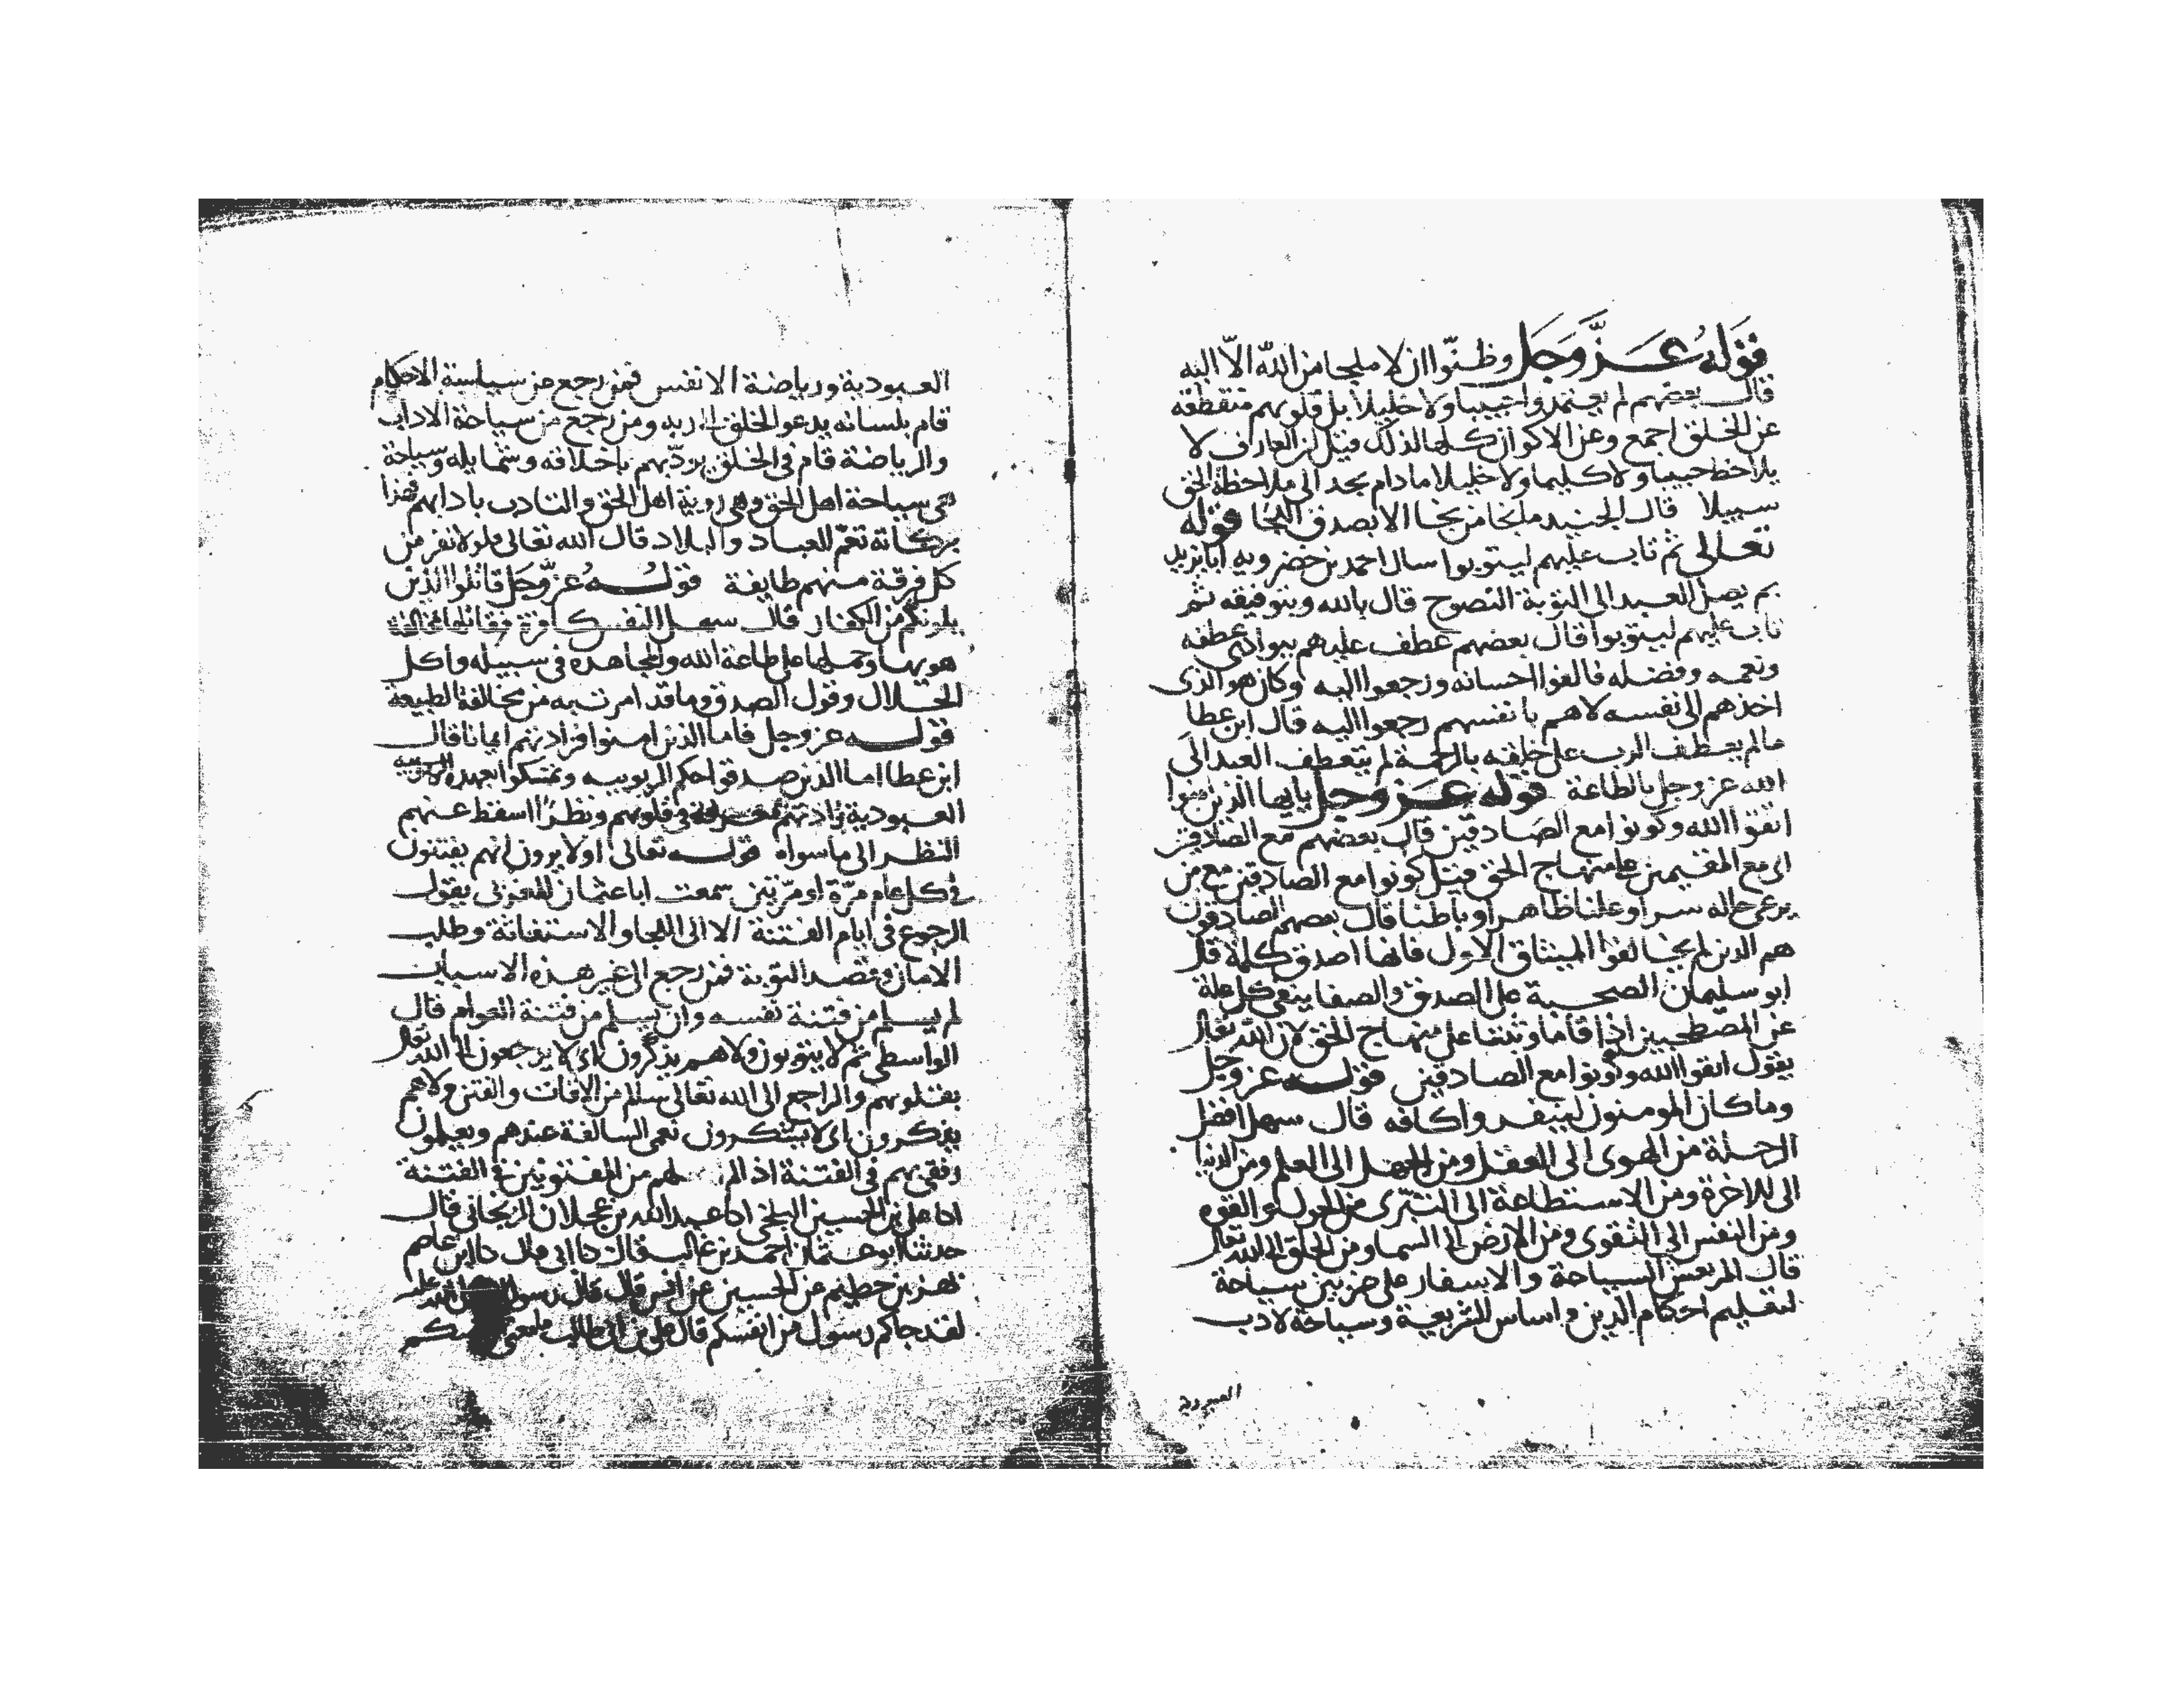 قوله عَزَّوَجَل وظنّوا ان لا ملجا من الله الّا اليه
قال بعضهم لم يعتمدوا حبيبا ولا خليلا بل قلوبهم منقطعه
عن الخلق اجمع وعن الاكوان كلها لذلك قيل ان العارف لا
يلاحظ حبيبا ولا كليما ولا خليلا ما دام يجد الى ملاحظة الحق
سبيلا قال الجنيد ما نجا من نجا الا بصدق اللجا قوله
تعالى ثم تاب عليهم ليتوبوا سال احمد بن خضرويه ابا يزيد
بم يصل العبد الى التوبة النصوح قال بالله وبتوفيقه ثم
تاب عليهم ليتوبوا قال بعضهم عطف عليهم ببوادى عطفه
ونعمه وفضله فالفوا احسانه ورجعوا اليه وكان هو الذى
اخذهم الى نفسه لا هم بانفسهم رجعوا اليه قال ابن عطا
مالم يعطف الرب على خلقه بالرحمة لم يتعطف العبد الى
الله عز وجل بالطاعة قوله عَزوجل يايها الذين امنوا
اتقوا الله وكونوا مع الصادقين قال بعضهم مع الصادقين
اى مع المقيمين على منهاج الحق قيل كونوا مع الصادقين مع من
يرعى حاله سرا وعلنا ظاهرا وباطنا قال بعضهم الصادقون
هم الذين لم يخالفوا الميثاق الاول فانها اصدق كلمة قال
ابو سليمان الصحبة على الصدق والصفا ينفى كل علة
عن المصطحبين اذا قاما وثبتا على منهاج الحق لان الله تعالى
يقول اتقوا الله وكونوا مع الصادقين قوله عز وجل
وما كان المومنون لينفروا كافه قال سهل افضل
الرحلة من الهوى الى العقل ومن الجهل الى العلم ومن الدنيا
الى للاخرة ومن الاستطاعة الى التبرّى من الحول والقوه
ومن النفس الى التقوى ومن الارض الى السما ومن الخلق الى الله تعالى
قال المرتعش السياحة والاسفار على ضربين سياحة
لتعليم احكام الدين واساس الشريعة وسياحة لاداب
العبودية
العبودية ورياضة الانفس فمن رجع من سياسة الاحكام
قام بلسانه يدعو الخلق الى ربه ومن رجع من سياحة الاداب
والرياضة قام فى الخلق يردّبهم باخلاقه وشمايله وسياحة
هى سياحة اهل الحق وهى روية اهل الحق والتادب بادابهم فهذا
بركاته تعمّ للعباد والبلاد قال الله تعالى فلولا نفر من
كل فرقة منهم طايفة قوله عزّوجَل قاتلوا الذين
يلونكم من الكفار قال سهل النفس كافرة فقاتلها بمخالفة
هويها وحملها على طاعة الله والمجاهده فى سبيله واكل
الحلال وقول الصدق وما قد امرت به من مخالفة الطبيعة
قوله عز وجل فاما الذين امنوا فزادتهم ايمانا قال
ابن عطا اما الذين صدقوا حكم الربوبيه وتمسكوا بعهده
العبودية زادتهم فى قلوبهم ونظرًا اسقط عنهم
النظر الى ما سواه قوله تعالى اولا يرون انهم يفتنون
فى كل عام مرّة او مرّتين سمعت ابا عثمان المغربى يقول
الرجوع فى ايام الفتنة الا الى اللجا والاستغاثة وطلب
الامان وقصد التوبة فمن رجع الى غير هذه الاسباب
لم يسلم من فتنة نفسه وان يسلم من فتنة العوام قال
الواسطى ثم لا يتوبون ولا هم يذكّرون اى لا يرجعون الى الله تعالى
بقلوبهم والراجع الى الله تعالى سلم من الافات والفتن ولا هم
يذكرون اى لا يتذكرون نعمى السالفة عندهم ويعلمون
رفقى بهم فى الفتنة اذ من المفتونين فى الفتنة
انا على بن الحسين البلخى انا عبد الله بن عجلان الزنجانى قال
حدثنا ابو عثمان احمد بن غالب قال نا ابى قال نا ابن عاصم
نهز بن حطيم عن الحسين عن انس قال قال رسول الله
لقد جاكم رسول من انفسكم قال على بن ابى طالب ما معنى